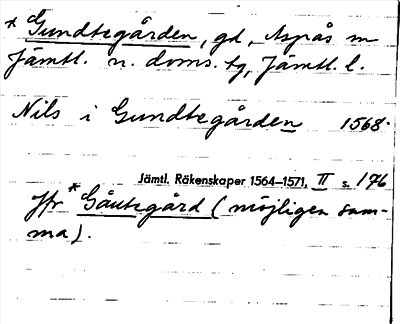 * Gundtegården, gd, Aspås sn
Jämtl. n. doms. tg, Jämtl. l.
Nils i Gundtegården 1568.
Jämtl. Räkenskaper 1564–1571, II s. 176
Jfr * Gåutegård (möjligen sam-
ma).